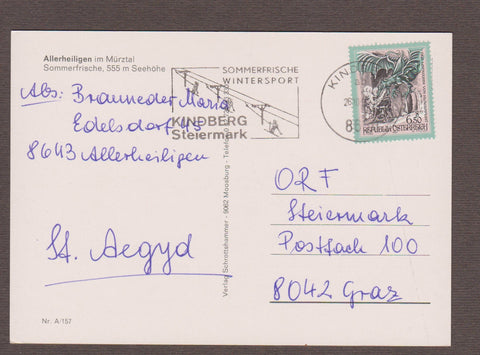 Allerheiligen im Mürztal
Sommerfrische, 555 m Seehöhe
Abs: Brauneder Maria
Edelsdorf 45
8643 Allerheiligen
St. Aegyd
Nr. A/157
Verlag Schrottshammer - 9062 Moosburg - Telefon
SOMMERFRISCHE
WINTERSPORT
KINDBERG
Steiermark
KINDBERG
REPUBLIK ÖSTERREICH
6.50
ORF
Steiermark
Postfach 100
8042 Graz